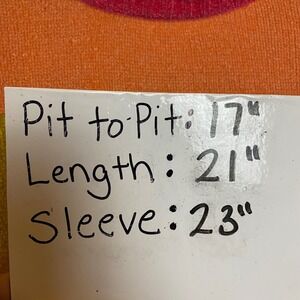 Pit to Pit: 17"
Length: 21"
Sleeve: 23"